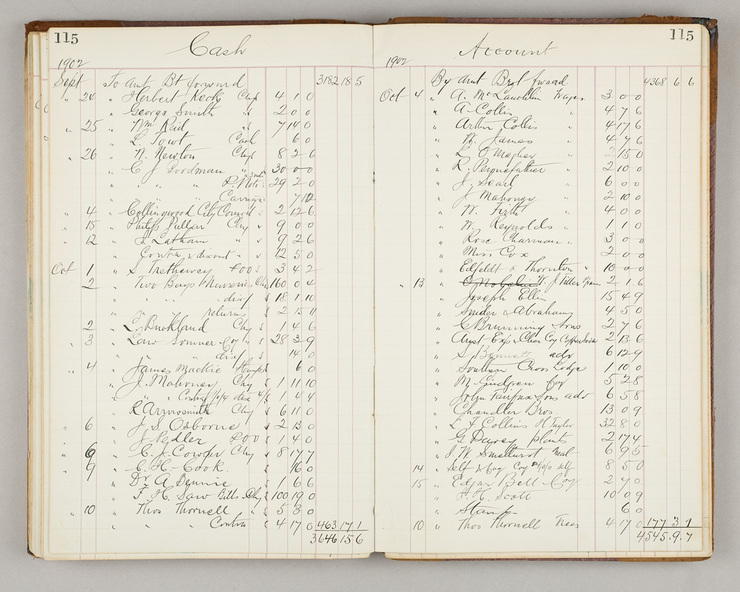 115
Cash
1902
Sept To Amt Bt forward 3182 18 5
" 24 " Herbert Keck Chq 4 1 0
" George Smith " 2 0 0
" 25 " Wm Raid " 7 14 0
" L. Towt Cash 6 0
" 26 " N. Newton Chq 8 2 6
" C J Goodman " 30 0 0
" " P. Note 29 2 0
" " Carriage 7
" 4 " Collingwood City Council " 2 12 6
" 15 " Philip Pullar Chq " 9 0 0
" 12 " J. Latham " 9 2 6
" Contra discount " 12 5 0
Oct 1 " S. Trethewey POO 3 4 2
" 2 " Two Bays Nursery Chq 160 0 4
" " disct 18 1 10
" " returns 2 15 11
" 2 " Buckland Chq 1 4 6
" 3 " Law Somner Coy " 28 3 9
" " disct 14 0
" 4 " James Mackie 6 0
" J. Mahoney Chq 1 11 10
" " Contra 1 4 4
" R Arrowsmith Chq 6 11 0
" 6 " J. S. Osborne " 2 13 0
" J. Nedler POO 1 4 0
" 6 " C. J. Cowper Chq 8 17 7
" 9 " C. H. Cook 16 0
" Dr A Dennie 1 6 6
" F. H. Law Bills Chq 100 19 0
" 10 " Thos Thornell " 5 3 0
" " Contra 4 17 0 463 17 1
3646 15 6
115
Account
1902
By Amt Brot forward 4368 6 6
Oct 4 " A. McLaughlin Wages 3 0 0
" A. Collis " 4 7 6
" Arthur Collis " 4 17 6
" W. James " 4 7 6
" L. O'Meagher " 2 15 0
" R. Pennefather " 2 10 0
" J. Searl " 6 0 0
" J. Mahoney " 2 10 0
" W. Firth " 4 0 0
" W. Reynolds " 1 1 0
" Rose Charman " 3 0 0
" Miss Cox 2 0 0
" Edfeldt & Thornton " 10 0 0
" 13 " W. J. 2 1 6
" Joseph Ellis 15 4 9
" Snider & Abrahams 4 5 0
" C Brunning & Sons 2 7 6
" Aust Exp 2 13 6
" S. Bennett adv 6 12 9
" Southern Cross Lodge 1 10 0
" M. Lindgren for 5 2 8
" John Fairfax Sons adv 6 5 8
" Chandler Bros 13 0 9
" L F Collins H Taylor 32 8 0
" G. Davey plants 2 17 4
" J. W. Smethurst Mel 6 9 5
" 14 " Self 8 5 0
" 15 " Edgar Bell Coy 2 9 0
" H. H. Scott 10 0 9
" Stamps 6 0
" 10 " Thos Thornell Trees 4 17 0 177 3 1
4545 9 7